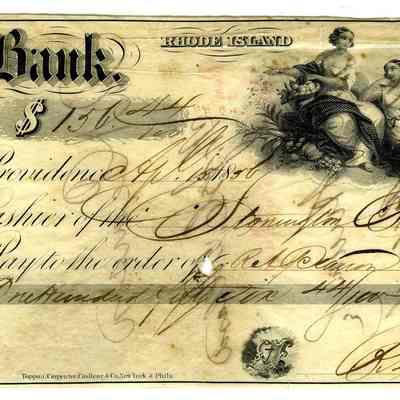 Bank.
RHODE ISLAND
$ 156 44
Providence Ap.
Cashier of the Stonington
Pay to the order of
One Hundred fifty Six 44/100
Toppan, Carpenter, Casilear & Co. New York & Phila.